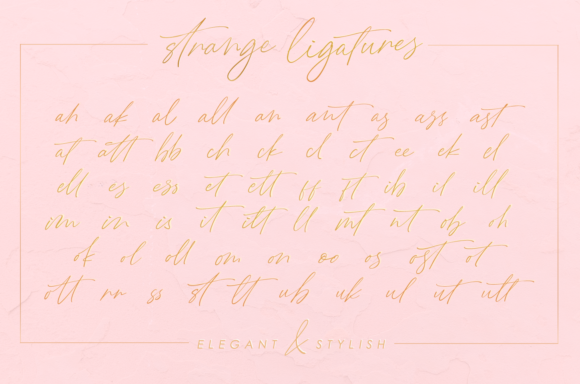 strange ligatures
ah ak al all an ant as ass ast
at att bb ch ck cl ct ee ek el
ell es ess et ett ff ft ib il ill
im in is it itt ll mt nt ob oh
ok ol oll om on oo os ost ot
ott rr ss st tt ub uk ul ut utt
ELEGANT & STYLISH